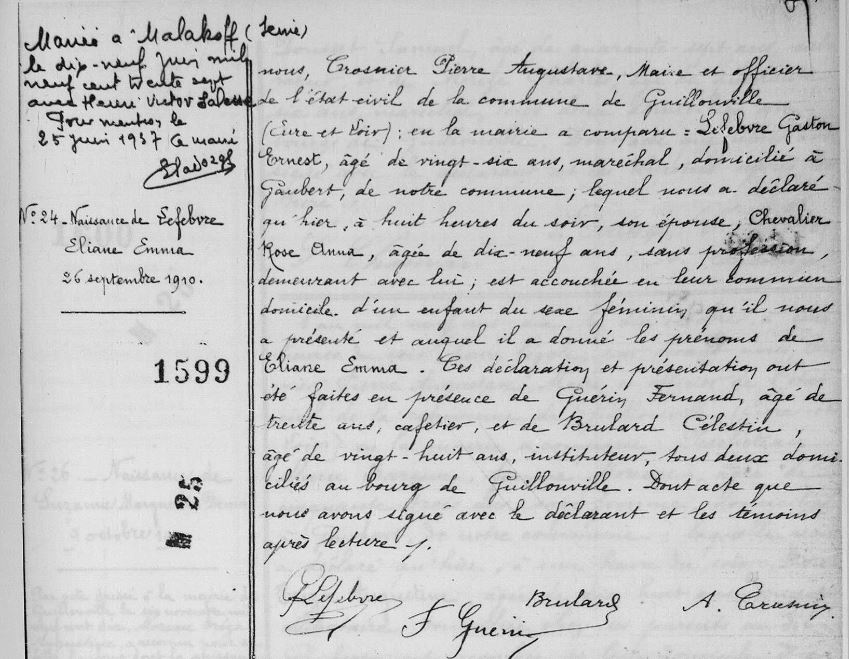 Mariée à Malakoff (Seine)
le dix-neuf juin mil
neuf cent trente sept
avec Henri Victor
Pour mention, le
25 juin 1937 Le maire
N° 24. Naissance de Lefebvre
Eliane Emma
26 septembre 1910.
1599
25
nous, Crosnier Pierre Augustave, Maire et officier
de l'état-civil de la commune de Guillonville
(Eure et Loir); en la mairie a comparu = Lefebvre Gaston
Ernest, âgé de vingt-six ans, maréchal, domicilié à
Gaubert, de notre commune; lequel nous a déclaré
qu'hier, à huit heures du soir, son épouse, Chevalier
Rose Anna, âgée de dix-neuf ans, sans profession,
demeurant avec lui; est accouchée en leur commun
domicile d'un enfant du sexe féminin qu'il nous
a présenté et auquel il a donné les prénoms de
Eliane Emma. Ces déclaration et présentation ont
été faites en présence de Guérin Fernand, âge de
trente ans, cafetier, et de Brulard Célestin,
âgé de vingt-huit ans, instituteur, tous deux domi-
ciliés au bourg de Guillonville. Dont acte que
nous avons signé avec le déclarant et les témoins
après lecture -/.
Lefebvre Brulard A. Crosnier
F Guérin
N° 26 - Naissance de